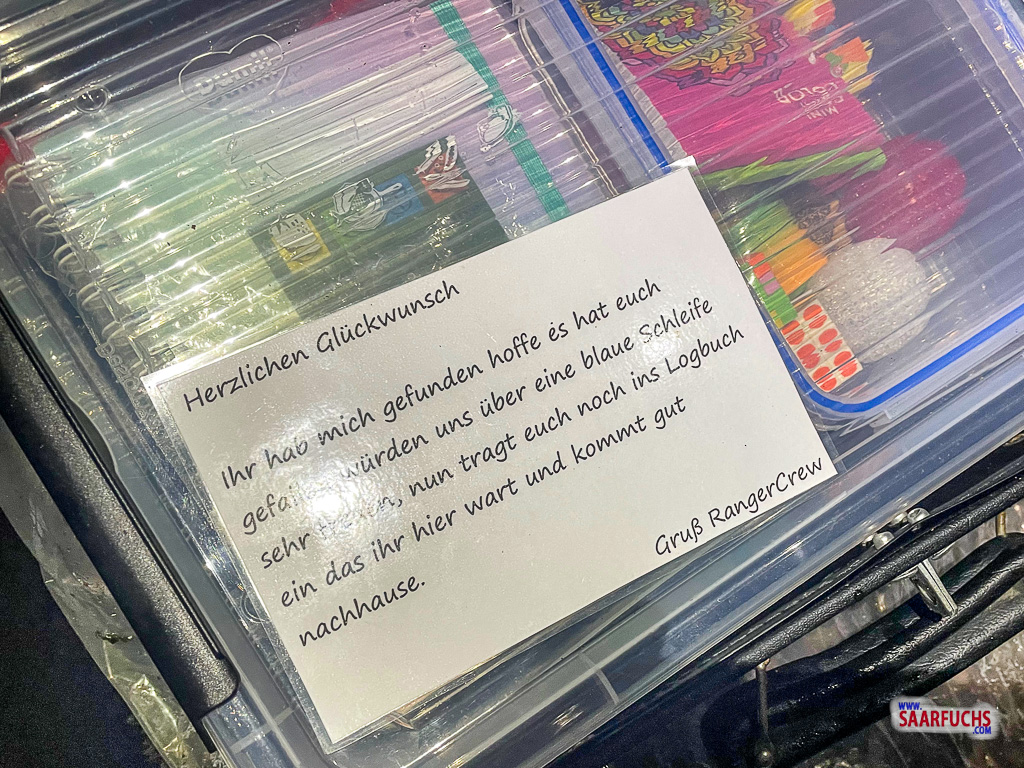 Herzlichen Glückwunsch
Ihr hab mich gefunden hoffe es hat euch
gefallen würden uns über eine blaue Schleife
sehr freuen, nun tragt euch noch ins Logbuch
ein das ihr hier wart und kommt gut
nachhause.
Gruß RangerCrew
MINI
COLOR
WWW.
SAARFUCHS
.COM